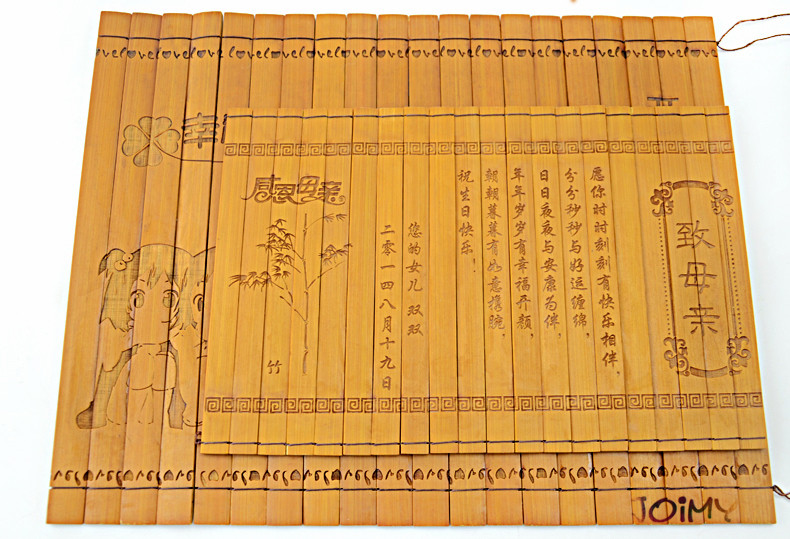 致母亲
愿你时时刻刻有快乐相伴,
分分秒秒与好运缠绵,
日日夜夜与安康为伴,
年年岁岁有幸福开颜,
朝朝暮暮有如意携腕。
祝生日快乐!
您的女儿 双双
二零一四八月十九日
感恩母亲
竹
幸
JOiMY